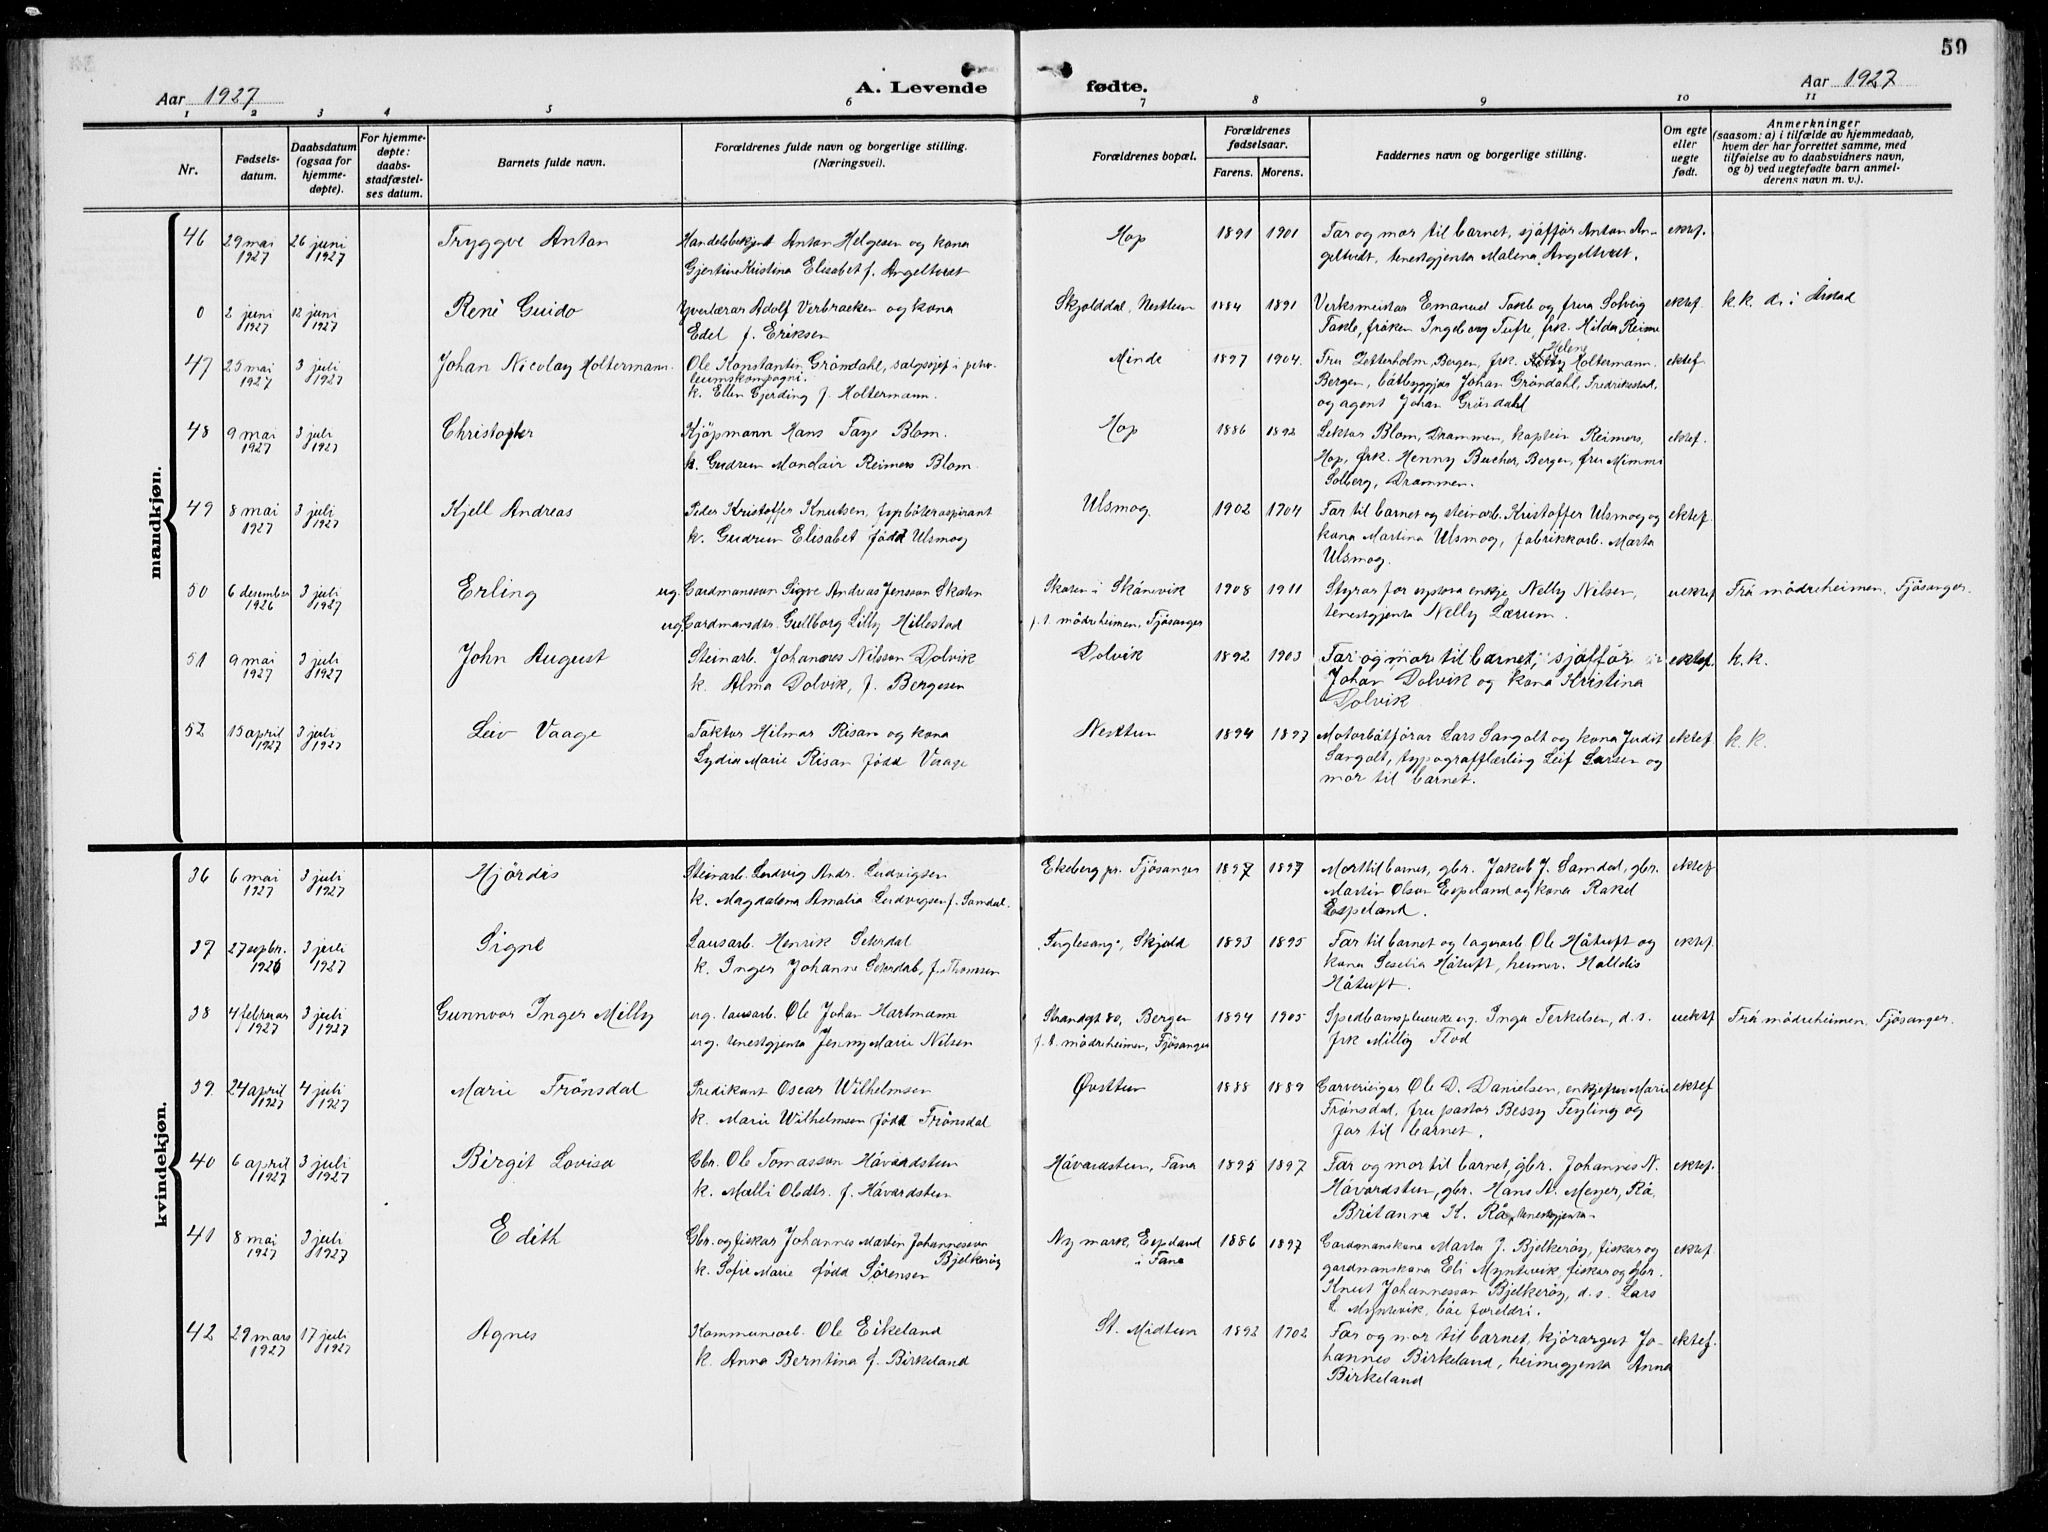 59
Aar 1927
A. Levende
fødte.
Aar 1927
1 2 3 4 5 6 7 8 9 10 11
Nr.
Fødsels-
datum.
Daabsdatum
(ogsaa for
hjemme-
døpte).
For hjemme-
døpte:
daabs-
stadfæstel-
ses datum.
Barnets fulde navn.
Forældrenes fulde navn og borgerlige stilling.
(Næringsveil).
Forældrenes bopæl.
Forældrenes
fødselsaar.
Farens. Morens.
Faddernes navn og borgerlige stilling.
Om egte
eller
uegte
født.
Anmerkninger
(saasom: a) i tilfælde av hjemmedaab,
hvem der har forrettet samme, med
tilføielse av to daabsvidners navn,
og b) ved uegtefødte barn anmel-
derens navn m. v.).
mandkjøn.
46 29 mai 26 juni Tryggve Anton Handelsbetjent Anton Helgesen og kona Hop 1891 1901 Far og mor til barnet, sjåffør Anton An- ektef.
1927 1927 Gjertine Kristina Elisabet f. Angeltveit geltveit, tenestgjenta Malena Angeltveit.
0 2 juni 12 juni René Guido Yverlærar Adolf Verbraeken og kona Skjolddal, Nesttun 1884 1891 Verksmeistar Emanuel Takle og frua Solveig ektef. k.k. d. i Årstad
1927 1927 Edel f. Eriksen Takle, frøken Ingeborg Tufte, frk. Hilda Reime
47 25 mai 3 juli Johan Nicolay Holtermann. Ole Konstantin Gröndahl, salgssjef i petro- Minde 1897 1904. Fru Zetterholm, Bergen, frk. Helene Holtermann. ektef
1927 1927 leumskompagni. Bergen, båtbyggjar Johan Gröndahl, Fredrikstad,
k. Ellen Gjerding f. Holtermann. og agent Johan Gröndahl
48 9 mai 3 juli Christopher Kjöpmann Hans Faye Blom. Hop 1886 1892 Lektor Blom, Drammen, kaptein Reimers, ektef.
1927 1927 k. Gudrun Mondair Reimers Blom. Hop, frk. Henny Bucher, Bergen, fru Mimmi
Solberg, Drammen.
49 8 mai 3 juli Kjell Andreas Peder Kristoffer Knutsen, fyrböteraspirant Ulsmog. 1902 1904 Far til barnet og steinarb. Kristoffer Ulsmog og ektef.
1927 1927 k. Gudrun Elisabet född Ulsmog kona Martina Ulsmog, fabrikkarb. Marta
Ulsmog.
50 6 desember 3 juli Erling ug. Gardmannsson Sigve Andreas Jensson Skaten Skaten i Skånvik 1908 1911 Styrar for systera enkje Nelly Nilsen, uektef Frå mödreheimen, Fjösanger.
1926 1927 ug. Gardmansdtr. Gullborg Lilly Hillestad f. t. mödreheimen, Fjösanger tenestgjenta Nelly Lærum.
51 9 mai 3 juli John August Steinarb. Johannes Nilsson Dolvik Dolvik 1892 1903 Far og mor til barnet, sjåffør ektef. k.k.
1927 1927 k. Alma Dolvik, f. Bergesen Johan Dolvik og kona Kristina
Dolvik
52 15 april 3 juli Leiv Vaage Faktor Hilmar Risan og kona Nesttun 1894 1897 Motorbåtförar Lars Sangolt og kona Judit ektef k.k.
1927 1927 Lydia Marie Risan född Vaage Sangolt, typograflærling Leif Larsen og
mor til barnet.
kvindekjøn.
36 6 mai 3 juli Hjördis Steinarb. Ludvig Andr. Ludvigsen Ekeberg pr. Fjösanger 1897 1897 Mor til barnet, gbr. Jakob J. Samdal, gbr. ektef
1927 1927 k. Magdalena Amalia Ludvigsen f. Samdal. Martin Olson Espeland og kona Rakel
Espeland.
37 27 septbr. 3 juli Signe Lausarb. Henrik Seterdal "Fuglesang", Skjold 1893 1895 Far til barnet og lagerarb. Ole Håtuft og ektef.
1926 1927 k. Inger Johanne Seterdal, f. Thomsen kona Seselia Håtuft, heimev. Halldis
Håtuft.
38 4 februar 3 juli Gunnvor Inger Milly ug. lausarb. Ole Johan Hartmann Strandgt 80, Bergen 1894 1905 Spedbarnspleierske ug. Inga Terkelsen, d. s. uektef Frå mödreheimen, Fjösanger.
1927 1927 ug. tenestgjenta Jenny Marie Nilsen f. t. mödreheimen, Fjösanger frk Milly Flod
39. 24 april 4 juli Marie Frönsdal Predikant Oscar Wilhelmsen Øvsttun 1888 1889 Garverieigar Ole D. Danielsen, enkjefru Marie ektef
1927 1927 k. Marie Wilhelmsen född Frönsdal Frönsdal, fru pastor Bessy Feyling og
far til barnet.
40 6 april 3 juli Birgit Lovisa Gbr. Ole Tomasson Håvardstun Håvardstun, Fana 1895 1897 Far og mor til barnet, gbr. Johannes N. ektef.
1927 1927 k. Malli Olsdtr. f. Håvardstun Håvardstun, gbr. Hans N. Meyer, Rå,
Britanna K. Rå, tenestgjenta
41 8 mai 3 juli Edith Gbr. og fiskar Johannes Martin Johannesson Ny mark, Espeland 1886 1897 Gardmanskona Marta J. Bjelkeröy, fiskar og ektef.
1927 1927 Bjelkeröy i Fana gardmanskona Eli Myntevik, fiskar og gbr.
k. Sofie Marie född Sörensen Knut Johannesson Bjelkeröy, d. s. Lars
L. Myntevik, båe foreldri.
42 29 mars 17 juli Agnes Kommunearb. Ole Eikeland St. Midtun 1892 1902 Far og mor til barnet, kjörargut Jo- ektef.
1927 1927 k. Anna Berntina f. Birkeland hannes Birkeland, heimegjenta Anna
Birkeland